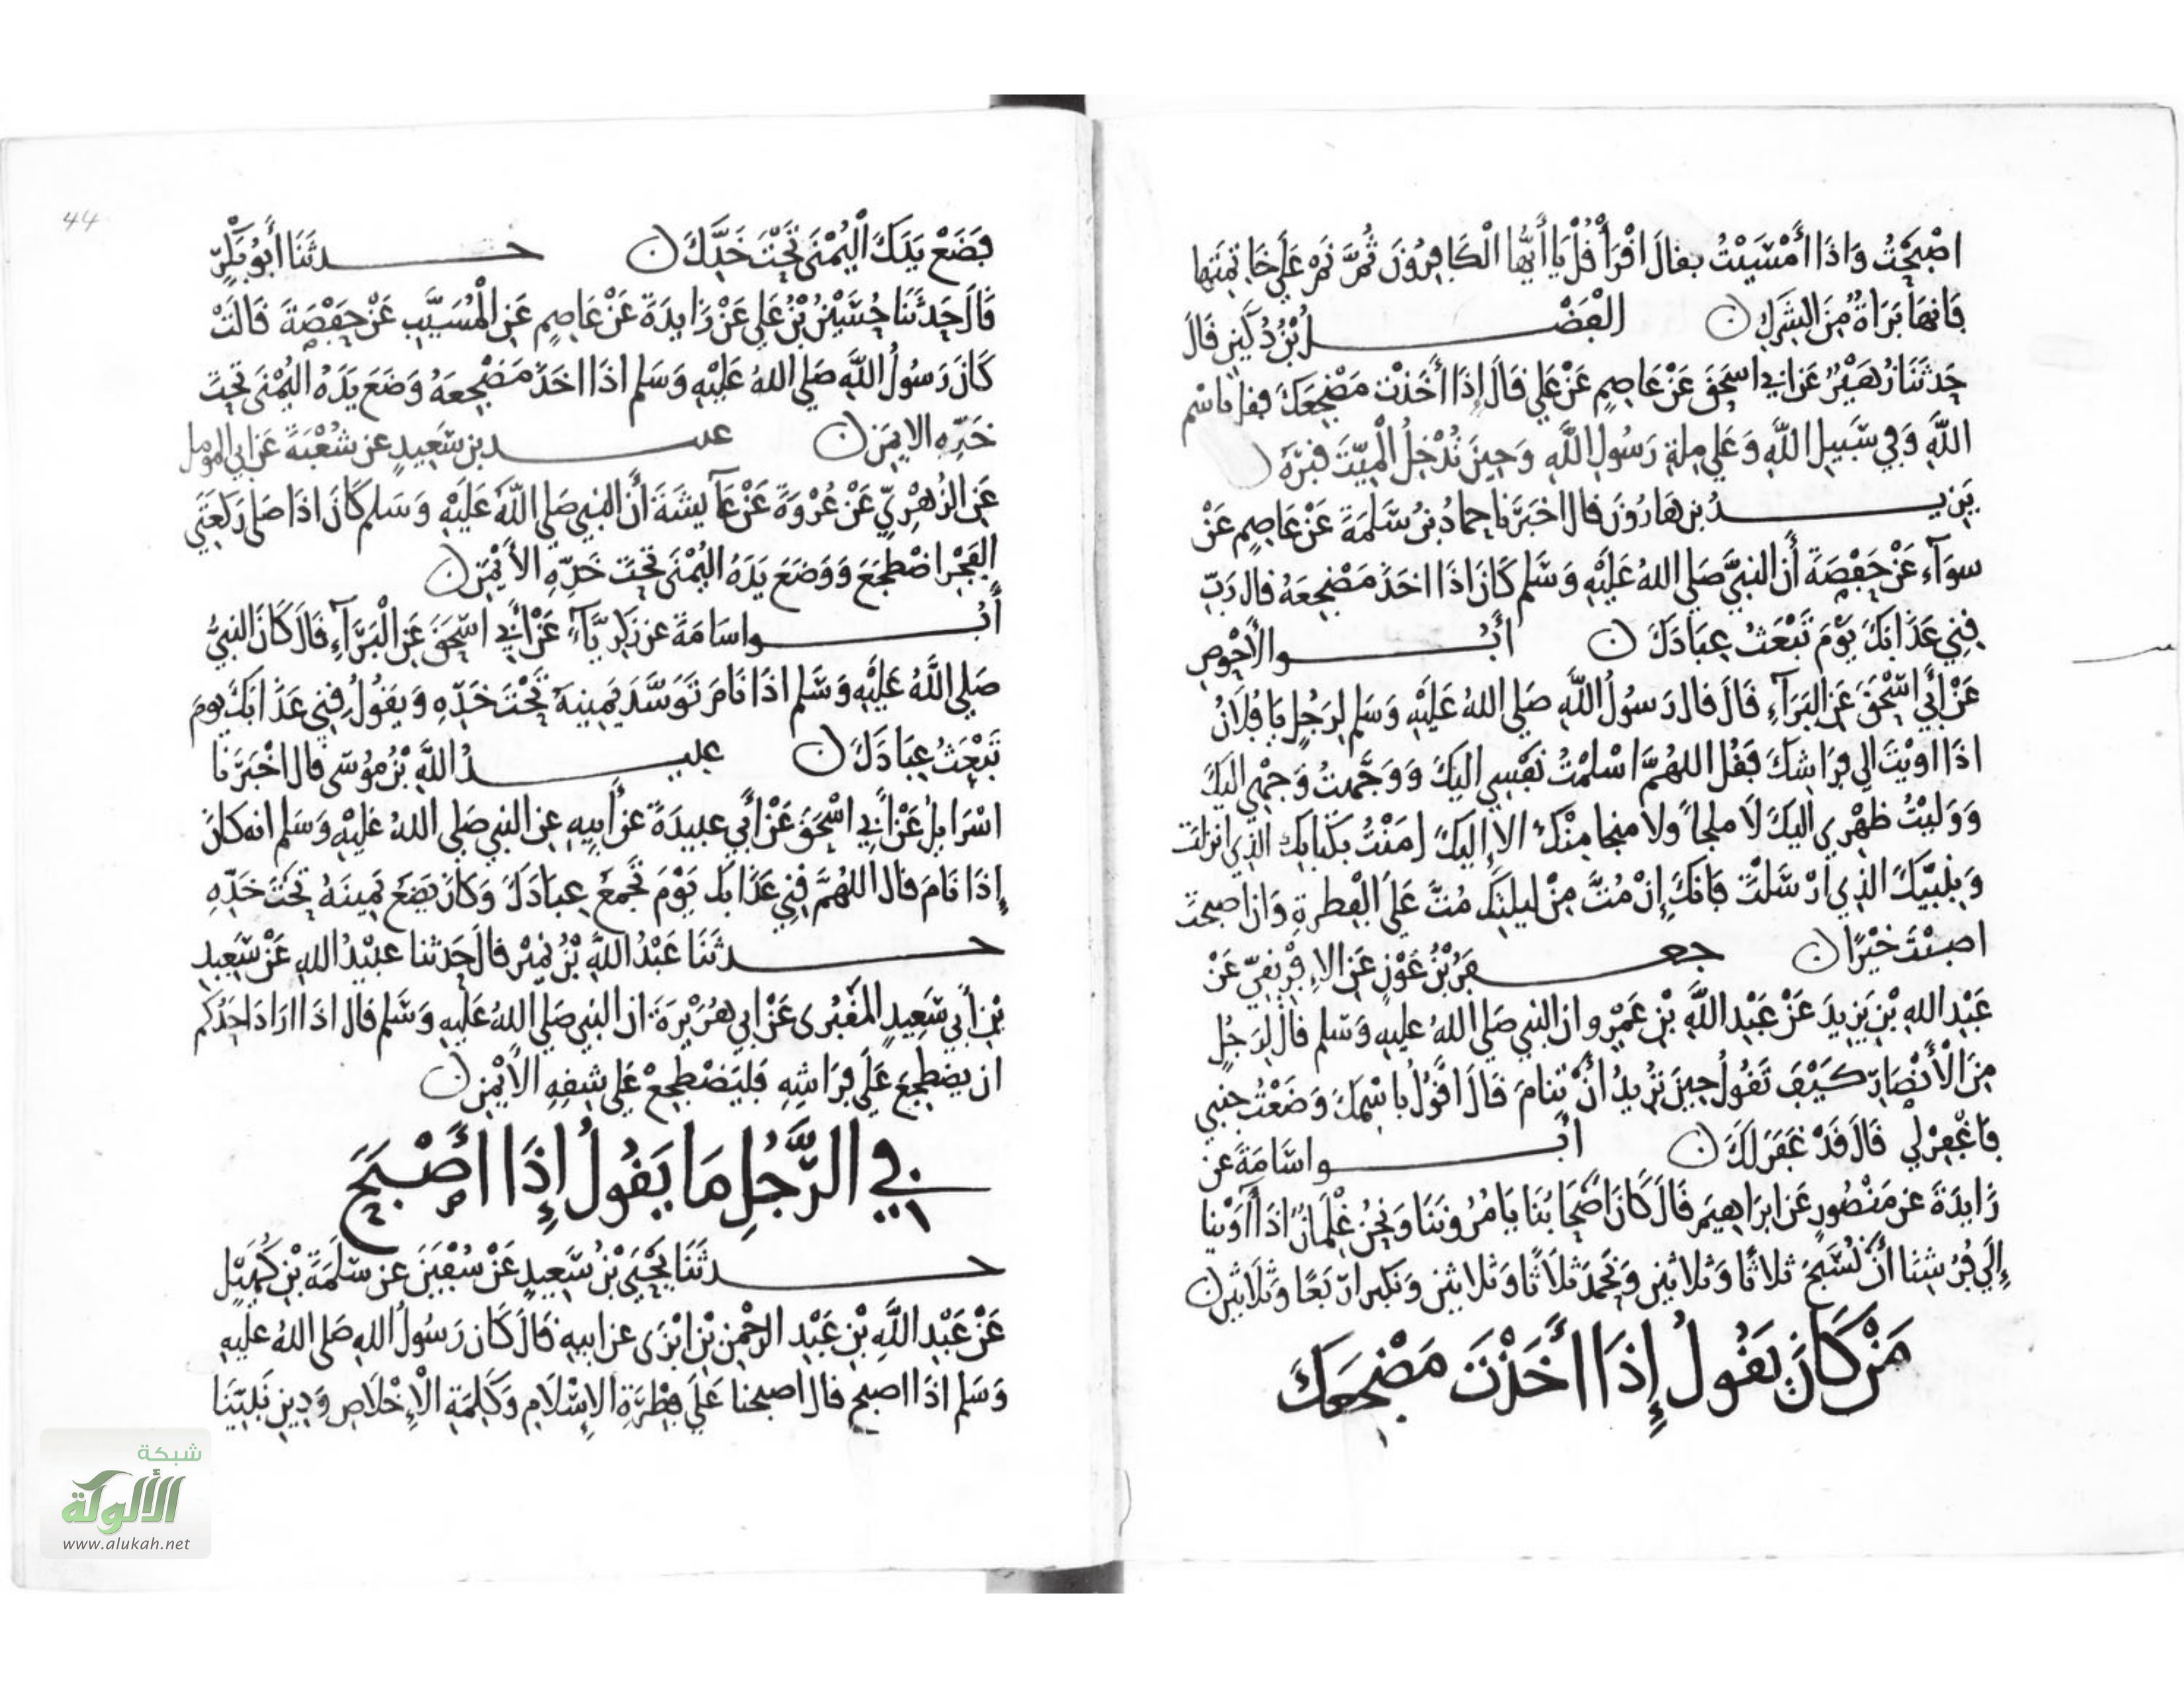 اصْبَحْتُ وَاذَا أَمْسَيْتُ بفالَ افْرَأْ فُلْ يَا أَيُّهَا الْكَافِرُونَ ثُمَّ نَمْ عَلَى خَاتِمَتِهَا
فَانهَا بَرَاةٌ مِنَ الشِّرْكِ ن الْفَضْلُ بْنُ دُكَيْنٍ فَالَ
حَدثَنَا زُهَيْرٌ عَن ابي اسحَقَ عَنْ عَاصِمٍ عَنْ عَلي فَالَ إِذَا أَخَذْتَ مَضْجِعَكَ ففل باسْمِ
اللَّهِ وَفي سَبِيلِ اللَّهِ وَعَلي مِلةِ رَسُولِ اللَّهِ وَحِينَ تُدْخِلُ الْمَيِّتَ فَبْرَهُ ن
يَزِيدُ بن هَارُونَ فال اخبَرَنا حمادُ بنُ سَلمَةَ عَنْ عَاصِمٍ عَنْ
سوَآءٍ عَنْ حَفْصَةَ أَن النبيَّ صَلي اللهُ عَلَيْهِ وَسَلم كَانَ اذَا اخَذَ مَضْجِعَهُ فال رَبِّ
فِنِي عَذَابَكَ يَوْمَ تَبْعَثُ عِبَادَكَ ن أَبُو الأَحْوَصِ
عَنْ أَبي اسْحَقَ عَنِ البَرَآءِ فَالَ فال رَسُولُ اللَّهِ صَلي اللهُ عَلَيْهِ وَسَلم لِرَجُلٍ يَا فُلَانُ
اذَا اوَيْتَ الي فِرَاشِكَ فَفُل اللهُمَّ اسْلمْتُ نَفْسِي اليْكَ وَوَجَّهتُ وَجْهِي اليْكَ
وَوَليْتُ ظَهْرِي اليْكَ لَا ملجأَ ولا منجا مِنْكَ الا إِليْكَ امَنْتُ بكتابك الذِي انزلت
وَبِنبيِّكَ الذِي ارْسَلتَ فَانكَ إِنْ مُتَّ مِنْ ليلتِكَ مُتَّ عَلَى الْفِطرةِ وَان اصبحتَ
اصبْتَ خَيْرًا ن جعفَرُ بْنُ عَوْنٍ عَنِ الاِفْرِيفِيِّ عَنْ
عَبْدِ اللهِ بْنِ يَزِيدَ عَنْ عَبْدِ اللَّهِ بْنِ عَمْرٍو ان النبي صَلي اللهُ عليهِ وَسَلم فال لِرَجُلٍ
مِنَ الْأَنْصَارِ كَيْفَ تَفُولُ حِينَ تُرِيدُ انْ تَنَامَ فَالَ افُولُ باسْمِكَ وَضَعْتُ جَنبي
فَاغْفِرْ لِي فَالَ فَدْ غَفَرَ لَكَ ن أَبُو اسَامَةَ عن
زَايدَةَ عن مَنْصُورٍ عَن ابرَاهِيمَ فَالَ كَانَ اصْحَابُنَا يَامُرُونَنَا وَنَحْنُ غِلْمَانٌ اذَا أَوَيْنا
إِلَي فُرُشِنَا أَنْ نُسَبِّحَ ثلاثًا وَثلاثين وَنحْمَدَ ثلَاثًا وَثلاثين وَنكبر ارْبَعًا وَثَلَاثين ن
مَنْ كَانَ يَفُولُ إِذَا أَخَذْتَ مَضْجِعَكَ
فَضَعْ يَدَكَ الْيُمْنَى تَحْتَ خَدِّكَ ن حدثَنَا أَبُو بَكْرٍ
فَالَ حَدثَنَا حُسَيْنُ بْنُ عَلي عَنْ زَايدَةَ عَنْ عَاصِمٍ عَنِ الْمُسَيَّبِ عَنْ حَفْصَةَ فَالَتْ
كَانَ رَسُولُ اللَّهِ صَلي اللهُ عَلَيْهِ وَسَلم اذَا اخَذَ مَضْجِعَهُ وَضَعَ يَدَهُ اليُمْنَى تَحتَ
خَدِّهِ الايمَنِ ن عبد بن سَعِيدٍ عن شُعْبَةَ عَن ابي المومل
عَنِ الزُهْرِيِّ عَنْ عُرْوَةَ عَنْ عَآيشَةَ أَن النبي صَلي اللَّهُ عَلَيْهِ وَسَلم كَانَ اذَا صَلى رَكعَتَي
الفَجْرِ اضْطجَعَ وَوَضَعَ يَدَهُ اليُمْنَى تَحْتَ خَدِّهِ الأَيْمَنِ ن
أَبُو اسَامَةَ عن زَكَرِيَّآءَ عَنْ أَبِي اسْحَقَ عَنِ الْبَرَآءِ فَالَ كَانَ النبيُّ
صَلي اللَّهُ عَلَيْهِ وَسَلم اذَا نَامَ تَوَسَّدَ يَمِينَهُ تَحْتَ خَدِّهِ وَيَفُولُ فِنِي عَذَابَكَ يومَ
تَبْعَثُ عِبَادَكَ ن عبيدُ اللَّهِ بْنُ مُوسَى فال اخْبَرَنا
اسْرَايلُ عَنْ أَبِي اسْحَقَ عَنْ أَبي عبيدَةَ عن أَبِيهِ عن النبي صَلي اللهُ عَليْهِ وَسَلم انه كانَ
إِذَا نَامَ فال اللهُمَّ فِنِي عَذَابَك يَوْمَ تَجْمَعُ عِبَادَكَ وَكَانَ يَضَعُ يَمِينَهُ تَحْتَ خَدِّهِ
حدثَنَا عَبْدُ اللَّهِ بْنُ نُمَيْرٍ فال حَدثنا عبيْدُ اللهِ عَنْ سَعِيدِ
بْنِ أَبي سَعِيدٍ المَفْبُرى عَنْ ابي هُرَيْرَةَ ان النبي صَلي اللهُ عَليهِ وَسَلم فال اذَا ارَادَ احَدُكم
ان يضطجِعَ عَلَي فِرَاشِهِ فَليَضْطجِعْ عَلي شِفِهِ الأَيْمَنِ ن
فِي الرَّجُلِ مَا يَفُولُ إِذَا أَصْبَحَ
حدثَنَا يَحْيَى بْنُ سَعِيدٍ عَنْ سُفْيَنَ عن سَلمَةَ بْنِ كُهَيْلٍ
عَنْ عَبْدِ اللَّهِ بْنِ عَبْدِ الرحْمنِ بْنِ ابْزَى عن ابيهِ فَالَ كَان رَسُولُ اللهِ صَلى اللهُ عليْهِ
وَسَلم اذَا اصبح فال اصبحنا عَلَي فِطْرَةِ الإِسْلَامِ وَكَلِمَةِ الْإِخْلَاصِ وَدِينِ نَبيِّنَا
44
شبكة
الألوكة
www.alukah.net